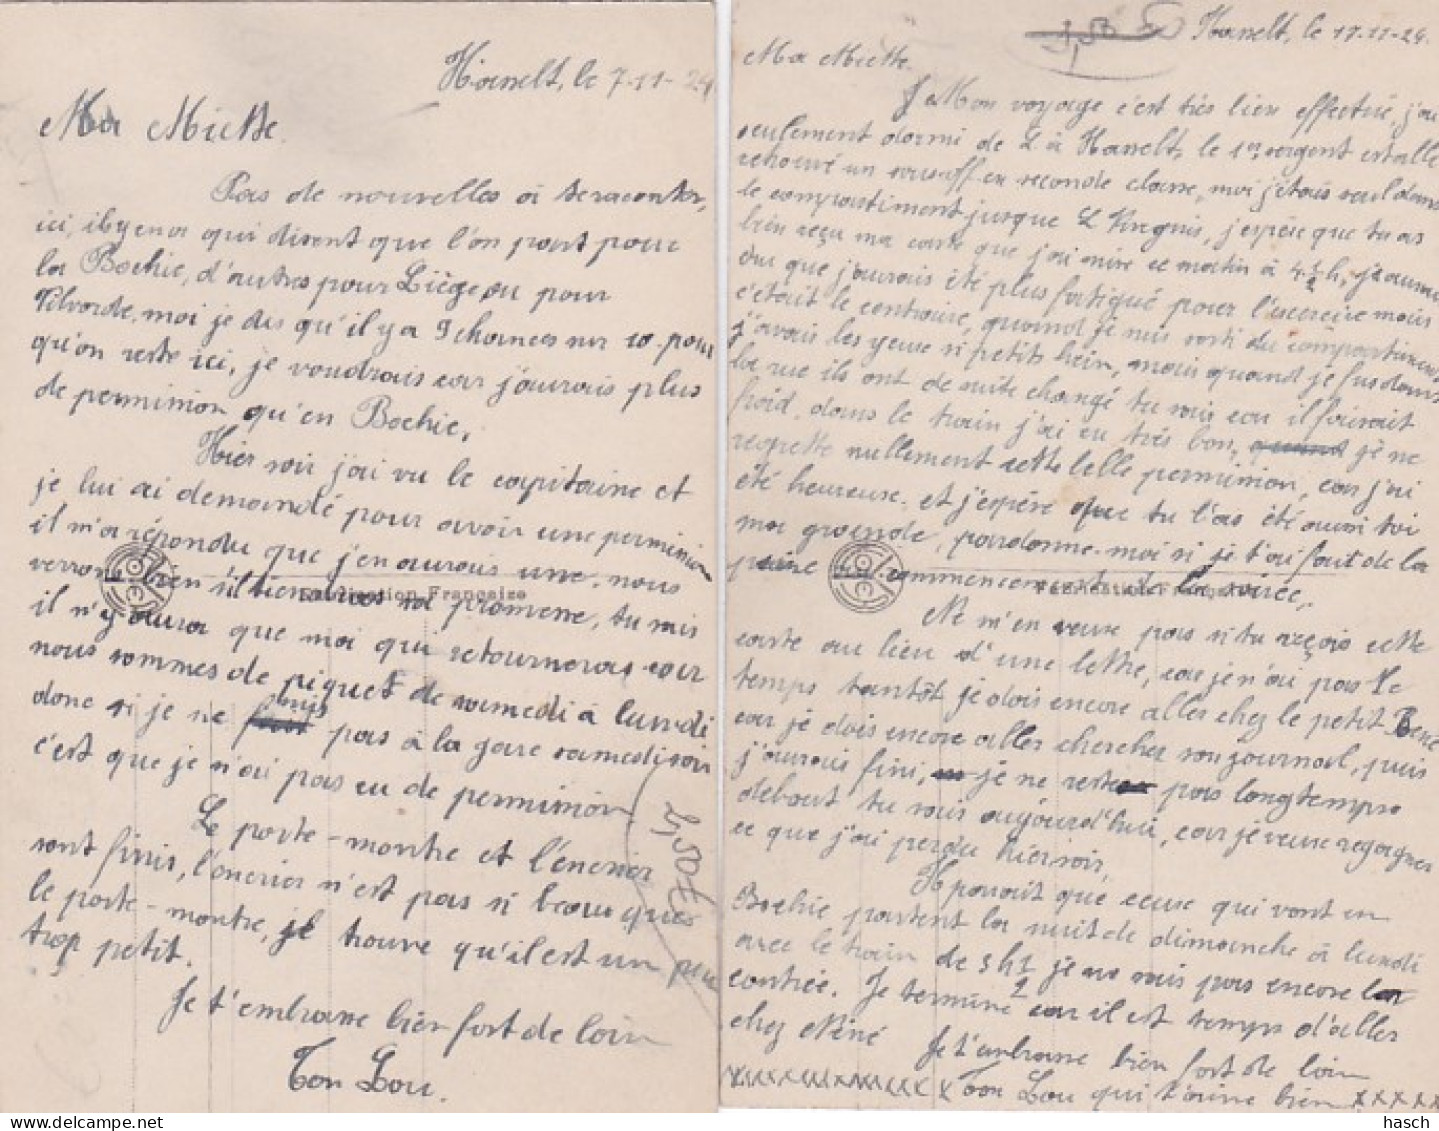 Hasselt, le 7-11-24
Ma Miette.
Pas de nouvelles à te raconter,
ici, il y en a qui disent que l'on part pour
la Bochie, d'autres pour Liège ou pour
Vilvorde, moi je dis qu'il y a 9 chances sur 10 pour
qu'on reste ici, je voudrais car j'aurais plus
de permission qu'en Bochie.
Hier soir j'ai vu le capitaine et
je lui ai demandé pour avoir une permission
il m'a répondu que j'en aurais une, nous
verrons bien s'il tiendra sa promesse, tu sais
il n'y aura que moi qui retournerais car
nous sommes de piquet de samedi à lundi
donc si je ne suis pas à la gare samedi soir
c'est que je n'ai pas eu de permission
Le porte-montre et l'encrier
sont finis, l'encrier n'est pas si beau que
le porte-montre, je trouve qu'il est un peu
trop petit.
Je t'embrasse bien fort de loin
Ton Lou.
2,50 €
Fabrication Française
1,50 €
Hasselt, le 17-11-24.
Ma Miette.
Mon voyage c'est très bien effectué, j'ai
seulement dormi de L à Hasselt, le 1er sergent est allé
retrouvé un sous-off en seconde classe, moi j'étais seul dans
le compartiment jusque, j'espère que tu as
bien reçu ma carte que j'ai mise ce matin à 4 1/2 h, j'aurais
cru que j'aurais été plus fatigué pour l'exercice mais
c'était le contraire, quand je suis sorti du compartiment
j'avais les yeux si petits hein, mais quand je fus dans
la rue ils ont de suite changé tu sais car il faisait
froid, dans le train j'ai eu très bon, je ne
regrette nullement cette belle permission, car j'ai
été heureuse et j'espère que tu l'as été aussi toi
ma grande, pardonne-moi si je t'ai fait de la
peine au commencement de la soirée,
Ne m'en veux pas si tu reçois cette
carte au lieu d'une lettre, car je n'ai pas le
temps tantôt je dois encore aller chez le petit René
car je dois encore aller chercher son journal, puis
j'aurais fini, je ne reste pas longtemps
debout tu sais aujourd'hui, car je veux regagner
ce que j'ai perdu hier soir,
Il paraît que ceux qui vont en
Bochie partent la nuit de dimanche à lundi
avec le train de 3 h 1/2 je ne sais pas encore la
contrée. Je termine car il est temps d'aller
chez Néné
Je t'embrasse bien fort de loin
xxxxxxxxxxxxxx Ton Lou qui t'aime bien xxxxx
Fabrication Française
hasch